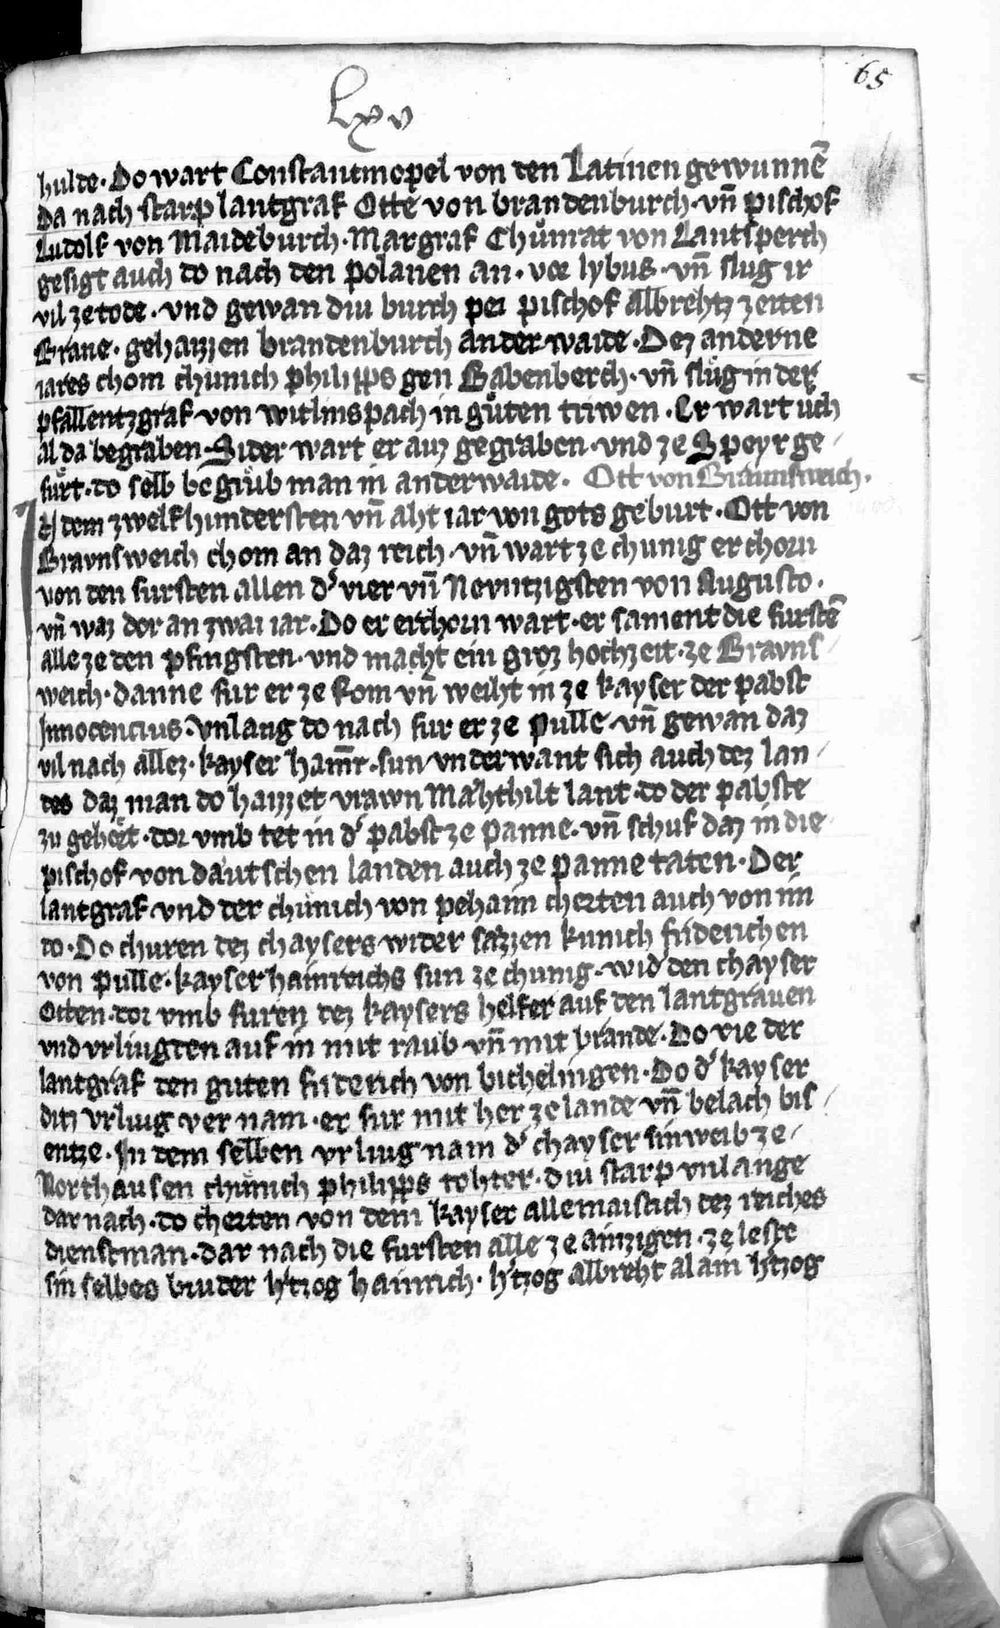 65
lxv
hulde · Do wart Constantinopel von den Latinen gewunnē
Da nach starp lantgraf Otte von brandenburch · vn̄ pischof
Ludolf von Maideburch · Margraf Chůnrat von Lantsperch
gesigt auch do nach den polanen an · vor lybus · vn̄ slug ir
vil ze tode · vnd gewan diu burch pei pischof albrehtz zeiten
Grane · gehaizzen brandenburch anderwaide · Dez anderne
iares chom chunich philipps gen Babenberch · vn̄ slůg in der
pfallentzgraf von witlinspach in gůten triwen · Er wart uch
al da begraben · Sider wart er auz gegraben · vnd ze Speyr ge /
fůrt · do selb begrůb man in anderwaide · Ott von Braunsweich ·
dem zwelfhundersten vn̄ aht iar von gots geburt · Ott von
Bravnsweich chom an daz reich · vn̄ wart ze chunig erchorn
von den fursten allen d' vier vn̄ Nevntzigsten von Augusto ·
vn̄ waz dor an zwai iar · Do er erchorn wart · er sament die furstē
alle ze den pfingsten · vnd macht ein groz hochzeit · ze Bravns /
weich · danne fur er ze Rom vn̄ weiht in ze kayser der pabst
Innocencius · vnlang do nach fur er ze Pulle · vn̄ gewan daz
vil nach allez · kayser hainr̄ · sun vnderwant sich auch dez lan /
des daz man do haizzet vrawn Mahthilt lant · do der pabste
zu gehoͤrt · dor vmb tet in d' pabst ze panne · vn̄ schuf daz in die
pischof von dautschen landen auch ze panne taten · Der
lantgraf vnd der chunich von pehaim cherten auch von im
do · Do churen dez chaysers wider sazzen kunich friderichen
von pulle · kayser hainreichs sun ze chunig · wid' den chayser
Otten · dor vmb furen dez kaysers helfer auf den lantgrauen
vnd vrliugten auf in mit raub vn̄ mit brande · Do vie der
lantgraf den guten friderich von bichelingen · Do d' kayser
ditz vrliug vernam · er fur mit her ze lande vn̄ belach bis /
entze · In dem selben vrliug nam d' chayser sin weib ze /
Northausen chůnich philipps tohter · diu starp vnlange
dar nach · do cherten von dem kayser allermaistich dez reiches
dienstman · dar nach die fursten alle ze ainzigen · ze leste
sin selbes bruder h'tzog hainrich · h'tzog albreht alain h'tzog